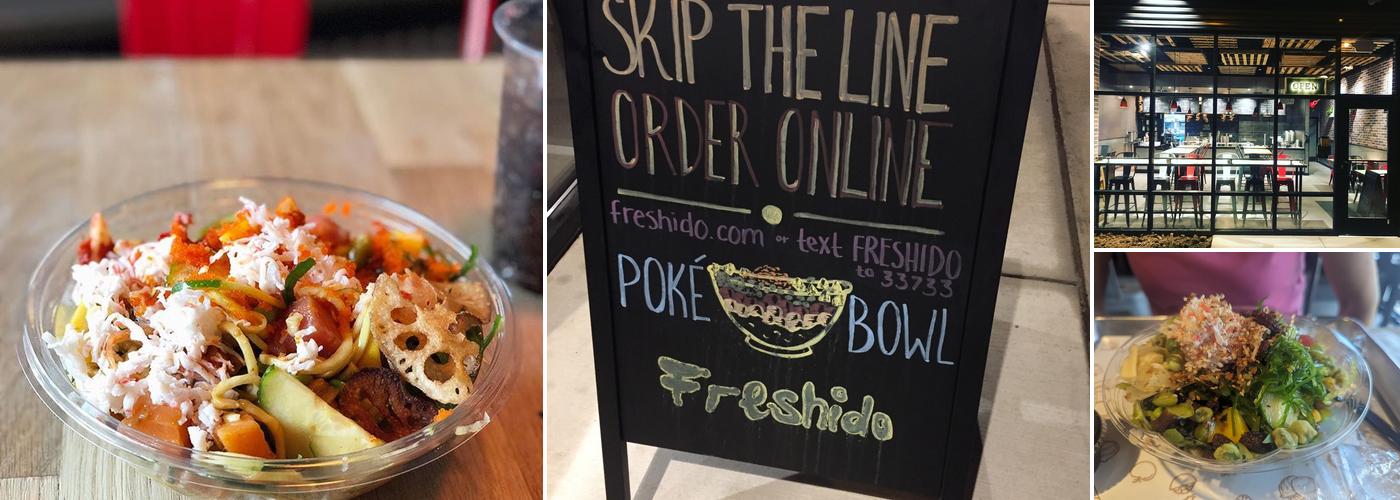 SKIP THE LINE
ORDER ONLINE
freshido.com or text FRESHIDO
to 33733
POKÉ BOWL
Freshido
OPEN